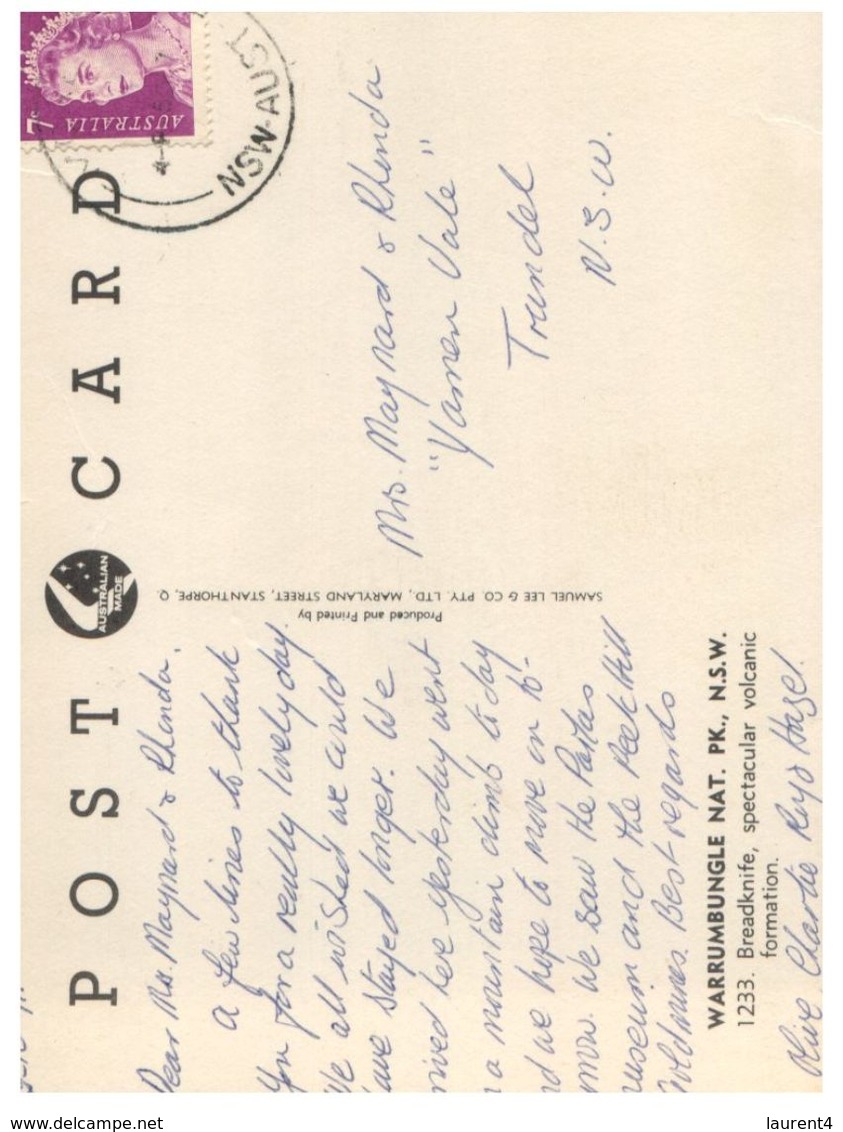 7c AUSTRALIA
NSW-AUST
POST CARD
AUSTRALIAN MADE
Dear Mrs. Maynard & Rhonda,
A few lines to thank
you for a really lovely day.
We all wished we could
have stayed longer. We
rrived here yesterday went
a mountain climb to day
nd we hope to move on to-
mow. We saw the Parkes
useum and the Peak Hill
Goldmines. Best regards
Olive Charlie Reg & Hazel.
WARRUMBUNGLE NAT. PK., N.S.W.
1233. Breadknife, spectacular volcanic
formation.
Produced and Printed by
SAMUEL LEE & CO. PTY. LTD., MARYLAND STREET, STANTHORPE, Q.
Mrs. Maynard & Rhonda
"Yamen Vale"
Trundel
N.S.W.
www.delcampe.net
laurent4